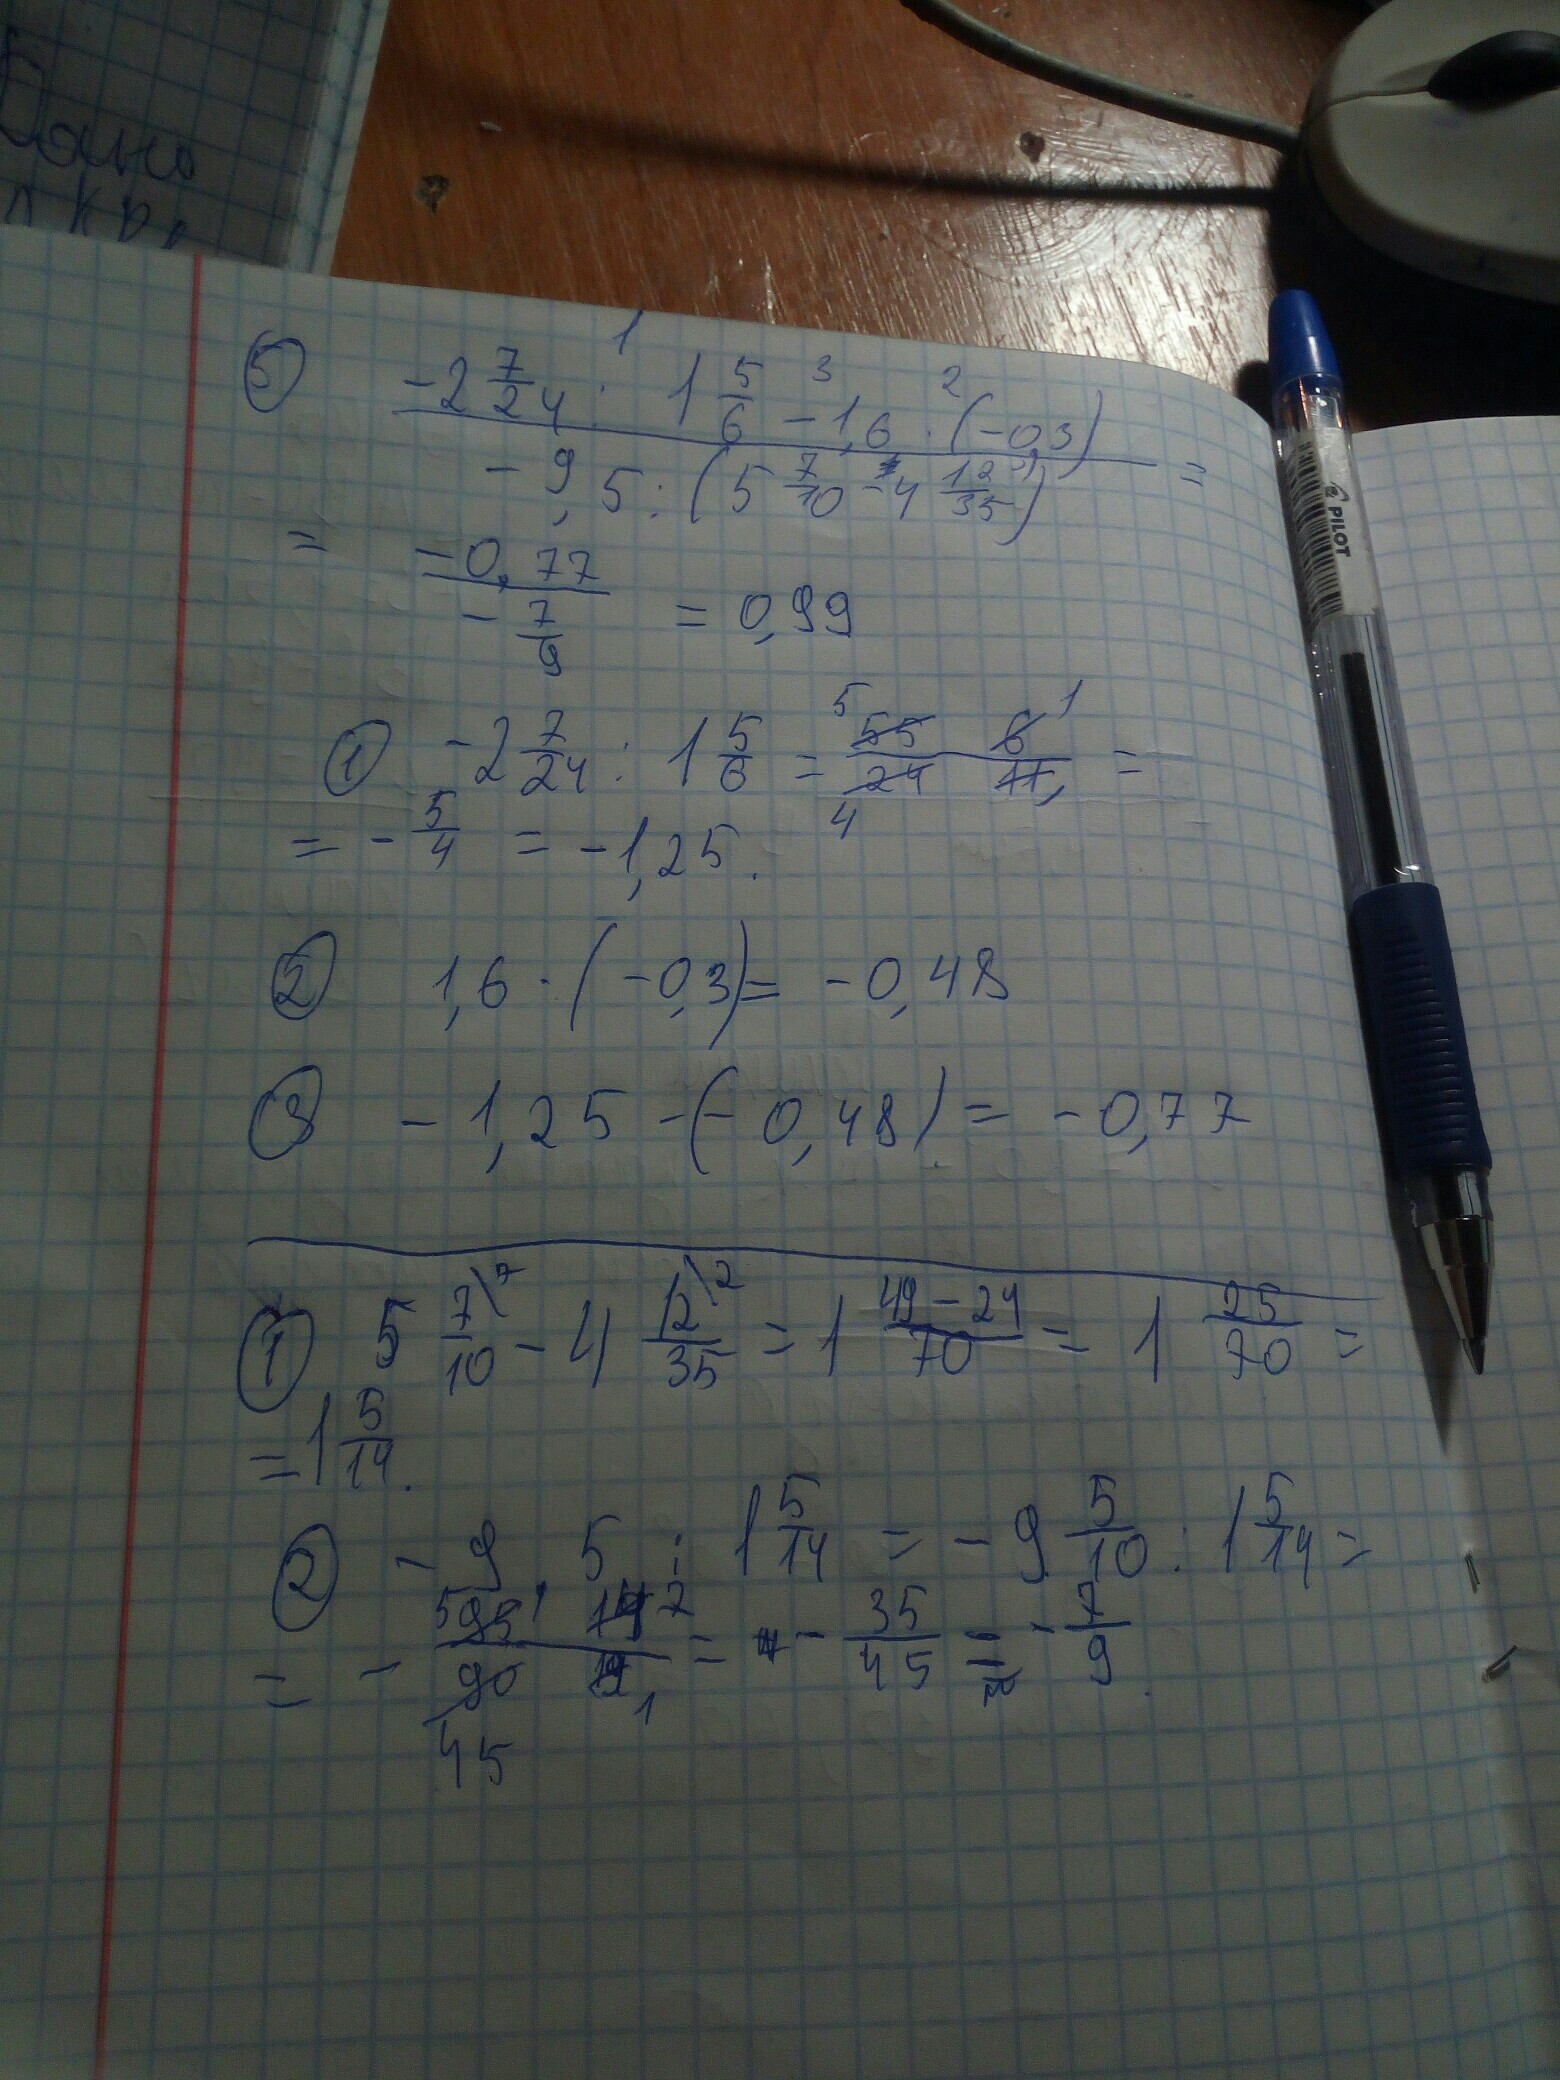 ⑤ -2 7/24 : 1 5/6 - 1,6 · (-0,3)
-9,5 : (5 7/10 - 4 12/35) =
= -0,77 / -7/9 = 0,99
① -2 7/24 : 1 5/6 = 55/24 6/11 =
= -5/4 = -1,25.
② 1,6 · (-0,3) = -0,48
③ -1,25 - (-0,48) = -0,77
① 5 7/10 \7 - 4 12/35 \2 = 1 49-24/70 = 1 25/70 =
= 1 5/14.
② -9,5 : 1 5/14 = -9 5/10 : 1 5/14 =
= - 95/90 14/19 = - 35/45 = - 7/9.
45
PILOT